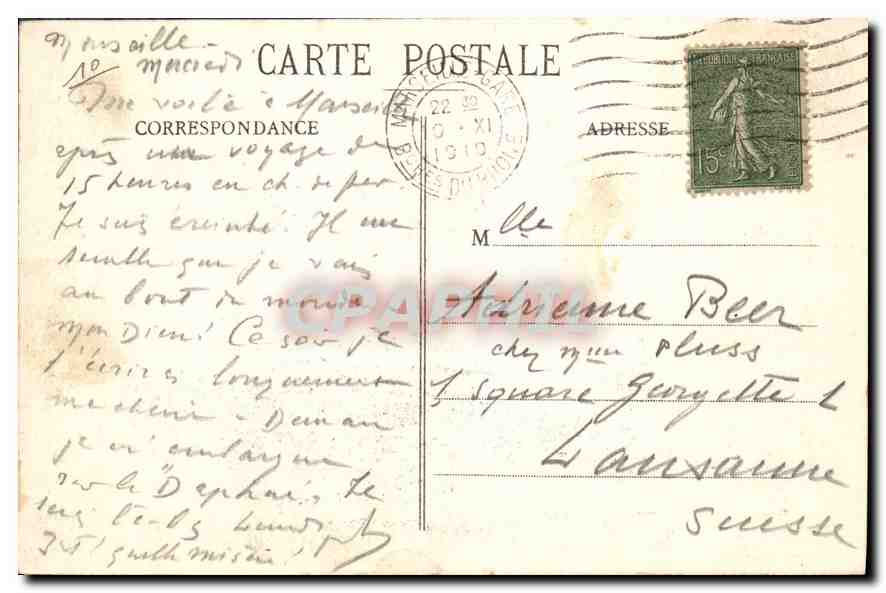 Marseille -
mercredi
10
CARTE POSTALE
CORRESPONDANCE
ADRESSE
MARSEILLE-GARE
22 30
XI
1919
BCHES DU RHONE
REPUBLIQUE FRANÇAISE
15c
me voilà à Marseille
après un voyage de
15 heures en ch. de fer
Je suis éreinté. Il me
semble que je vais
au bout du monde
mon Dieu! Ce soir je
t'écrirai longuement
ma chérie - Demain
je m'embarque
sur le "Daphné". Je
serai lundi
quelle misère!
Mlle
Adrienne Beer
chez Mme Pluss
1 Square Georgette 1
Lausanne
Suisse
CPAPHIL